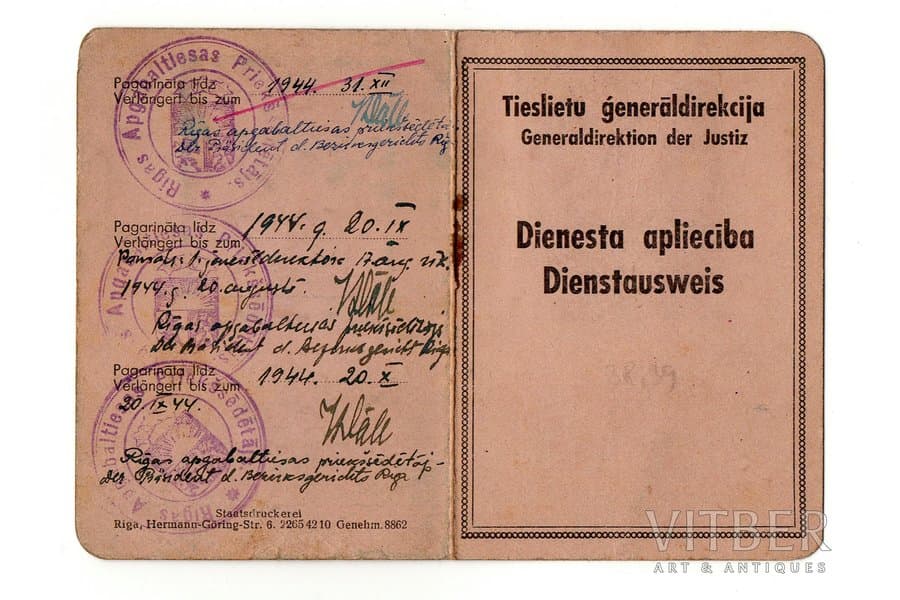 Rīgas Apgabaltiesas Priekšsēdētājs
Pagarināta līdz 1944. 31. XII
Verlängert bis zum
Rīgas apgabaltiesas priekšsēdētājs
Der Präsident d. Bezirksgerichts Riga
Pagarināta līdz 1944. g. 20. IX
Verlängert bis zum
17. aug.
1944. g. 20. augustā.
Rīgas apgabaltiesas priekšsēdētājs
Der Präsident d. Bezirksgericht Riga
Pagarināta līdz 1944. 20. X
Verlängert bis zum
20. IX 44.
Rīgas apgabaltiesas priekšsēdētāj-
Der Präsident d. Bezirksgerichts Riga
Staatsdruckerei
Riga, Hermann-Göring-Str. 6. 2265 42 10 Genehm. 8862
Tieslietu ģenerāldirekcija
Generaldirektion der Justiz
Dienesta apliecība
Dienstausweis
VITBER
ART & ANTIQUES